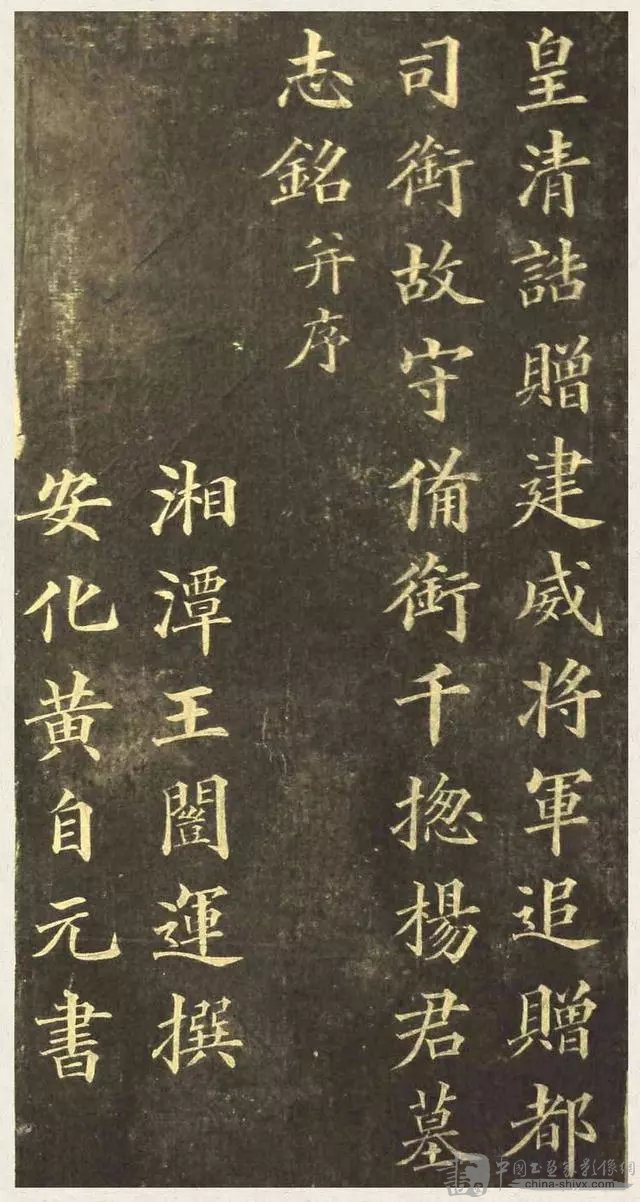 皇清誥贈建威将軍追贈都
司銜故守俻銜千捴楊君墓
志銘并序
湘潭王闓運撰
安化黄自元書
中國书画家影像網
china-shivx.com